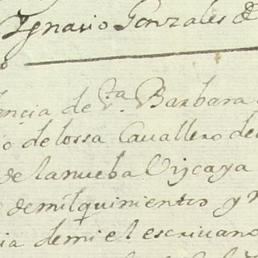 Ignacio Gonzales de
encia de Sta Barbara
o de lossa Cavallero de
de la nueba Viscaya
de mil quinientos y n
ia de mi el escrivano